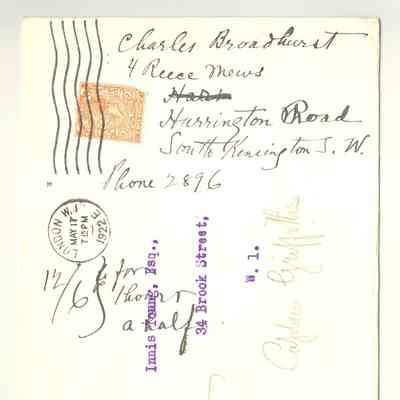 Charles Broadhurst
4 Reece Mews
Harrington Road
South Kensington S. W.
Phone 2896
LONDON W. 1
MAY 17
7 15 PM
1922
12/6 for
1 hour
a half
Innis Young, Esq.,
34 Brook Street,
W. 1.
Griffiths